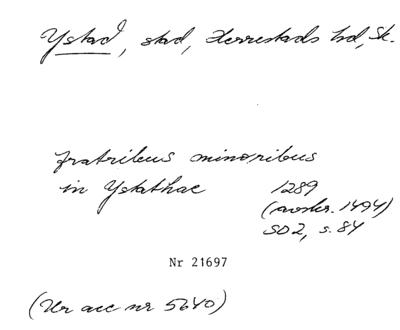 Ystad, stad, Herrestads hd, Sk.
fratribus minoribus
in Ystathae 1289
(avskr. 1494)
SD 2, s. 84
Nr 21697
(Ur acc nr 5640)